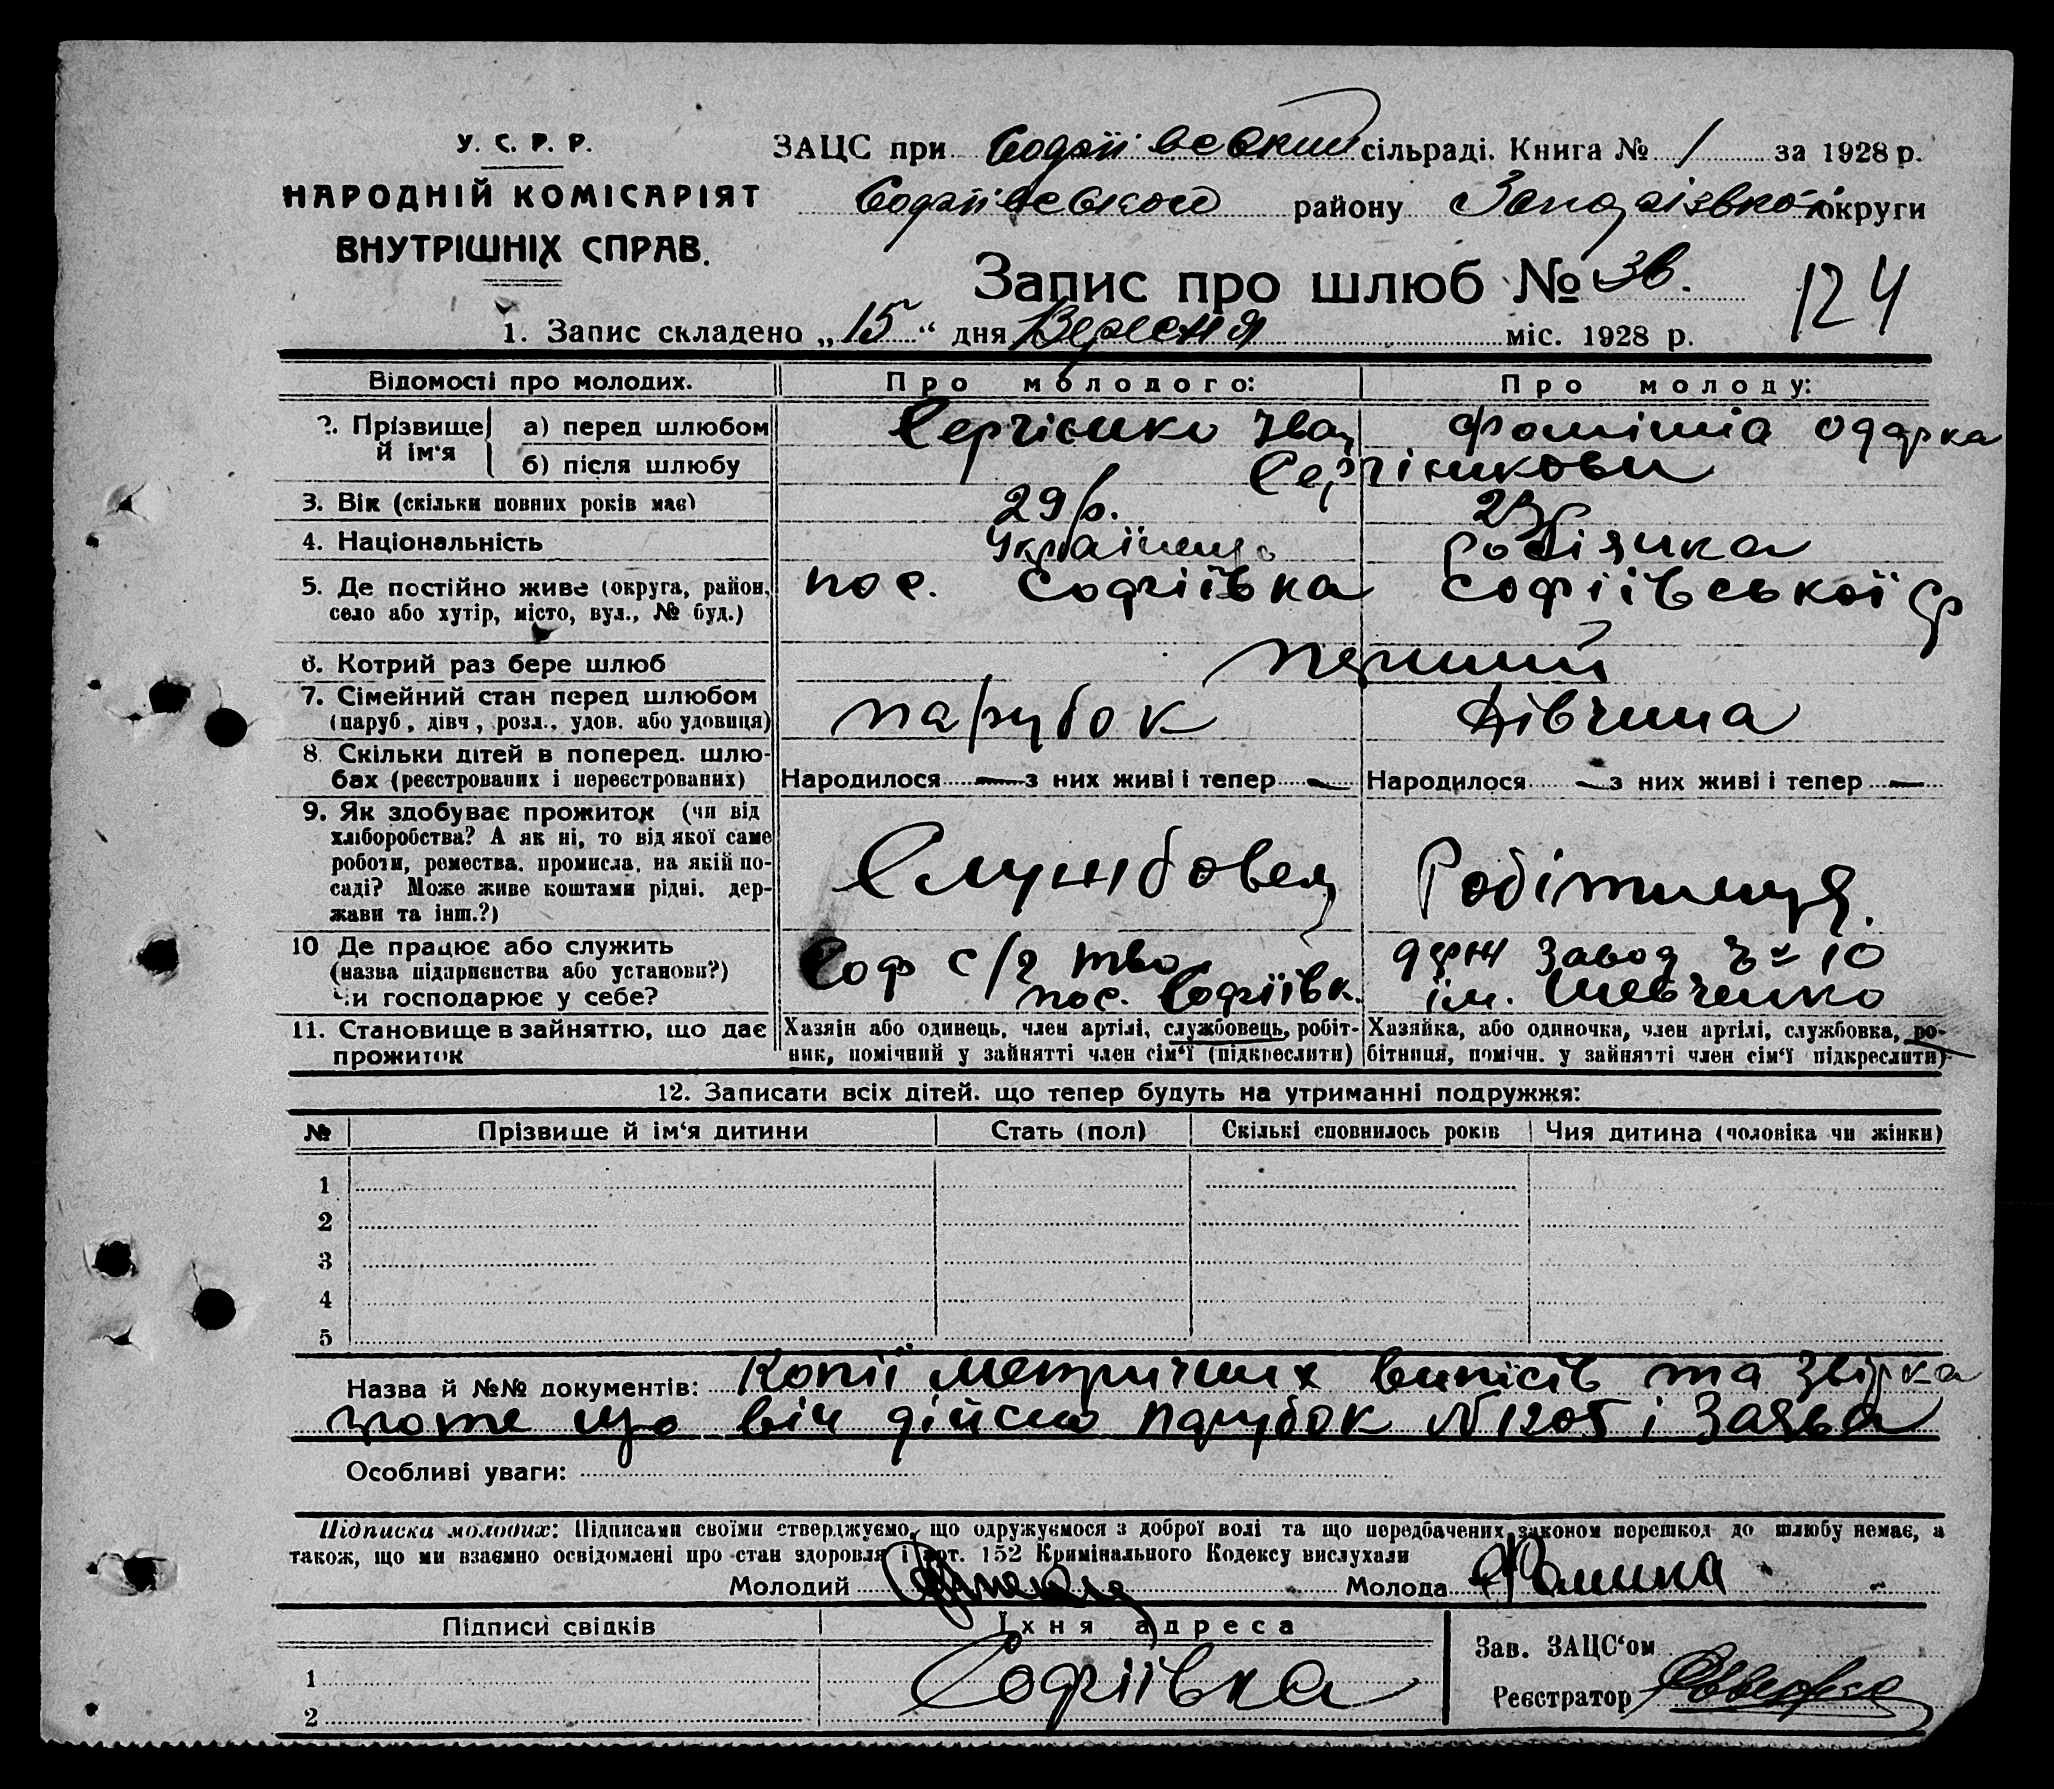 У. С. Р. Р.
НАРОДНІЙ КОМІСАРІЯТ
ВНУТРІШНІХ СПРАВ.
ЗАЦС при Софіївський сільраді. Книга № 1 за 1928 р.
Софіївської району Запорізької округи
Запис про шлюб №
124
1. Запис складено „15“ дня Вересня міс. 1928 р.
Відомості про молодих. Про молодого: Про молоду:
2. Прізвище й ім‘я а) перед шлюбом Сергієнко Іван Одарка
б) після шлюбу Сергієнкови
3. Вік (скільки повних років має) 29 р. 23 р.
4. Національність Українець
5. Де постійно живе (округа, район, пос. Софіївка Софіївської ср
село або хутір, місто, вул., № буд.)
6. Котрий раз бере шлюб перший
7. Сімейний стан перед шлюбом парубок дівчина
(паруб., дівч., розл., удов. або удовиця)
8. Скільки дітей в поперед. шлю-
бах (реєстрованих і нереєстрованих) Народилося — з них живі і тепер — Народилося — з них живі і тепер —
9. Як здобуває прожиток (чи від
хліборобства? А як ні, то від якої саме
роботи, ремества, промисла, на якій по- Службовець Робітниця.
саді? Може живе коштами рідні, дер-
жави та інш.?)
10 Де працює або служить Соф с/г тво держ завод № 10
(назва підприємства або установи?) пос. Софіївк. ім. Шевченко
Чи господарює у себе?
11. Становище в зайняттю, що дає Хазяін або одинець, член артілі, службовець, робіт- Хазяйка, або одиночка, член артілі, службовка, ро-
прожиток ник, помічний у зайнятті член сім‘ї (підкреслити) бітниця, помічн. у зайнятті член сім‘ї підкреслити)
12. Записати всіх дітей, що тепер будуть на утриманні подружжя:
№ Прізвище й ім‘я дитини Стать (пол) Скількі сповнилось років Чия дитина (чоловіка чи жінки)
1
2
3
4
5
Назва й №№ документів: Копії метричних виписів та
що він дійсно парубок № 1205 і Заява
Особливі уваги:
Підписка молодих: Підписами своїми стверджуємо, що одружуємося з доброї волі та що передбачених законом перешкод до шлюбу немає, а
також, що ми взаємно освідомлені про стан здоровля і арт. 152 Кримінального Кодексу вислухали
Молодий Молода
Підписи свідків Їхня адреса
Зав. ЗАЦС‘ом
1 Софіївка
Реєстратор
2